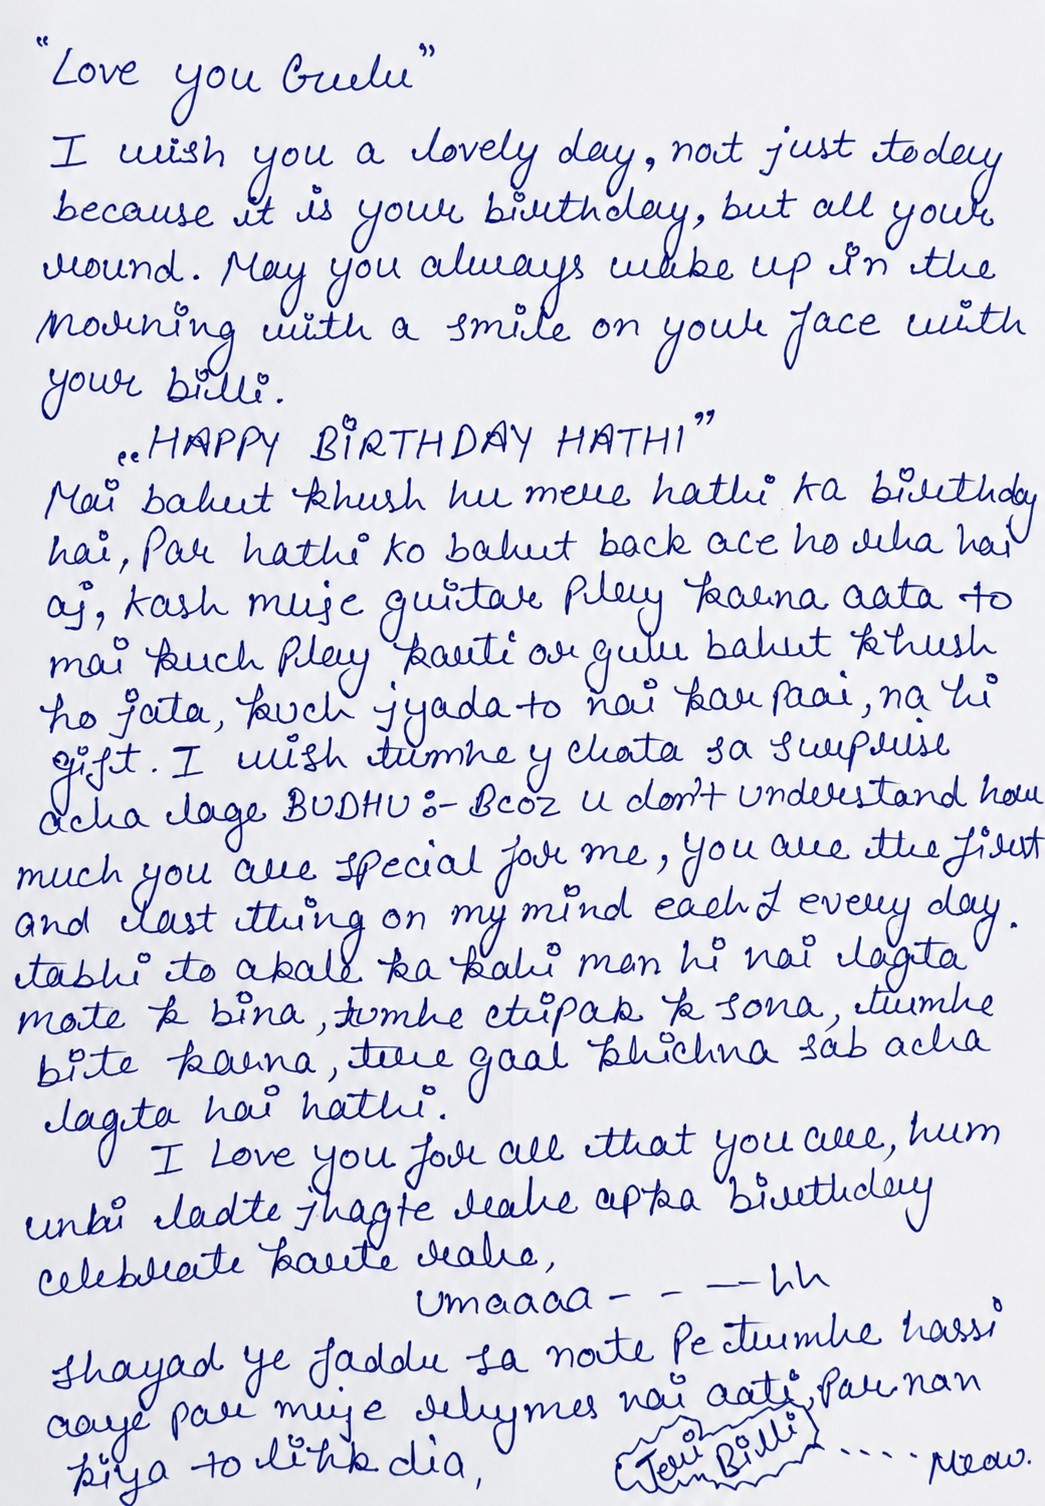 "Love you Gulu"
I wish you a lovely day, not just today
because it is your birthday, but all your
round. May you always wake up in the
morning with a smile on your face with
your billi.
"HAPPY BIRTHDAY HATHI"
Mai bahut khush hu mere hathi ka birthday
hai, Par hathi ko bahut back ace ho rha hai
aj, kash muje guitar Play karna aata to
mai kuch Play karti or gulu bahut khush
ho jata, kuch jyada to nai kar paai, na hi
gift. I wish tumhe y chata sa surprise
acha lage BUDHU :- Bcoz u don't understand how
much you are special for me, you are the first
and last thing on my mind each & every day.
tabhi to akale ka kahi man hi nai lagta
mote k bina, tumhe chipak k sona, tumhe
bite karna, tere gaal khichna sab acha
lagta hai hathi.
I Love you for all that you are, hum
unhi ladte jhagte rahe apka birthday
celebrate karte rahe,
Umaaaa - - — hh
Shayad ye faddu sa note Pe tumhe hassi
aaye par muje rhymes nai aati, Par man
kiya to likh dia,
Teri Billi .... Meow.